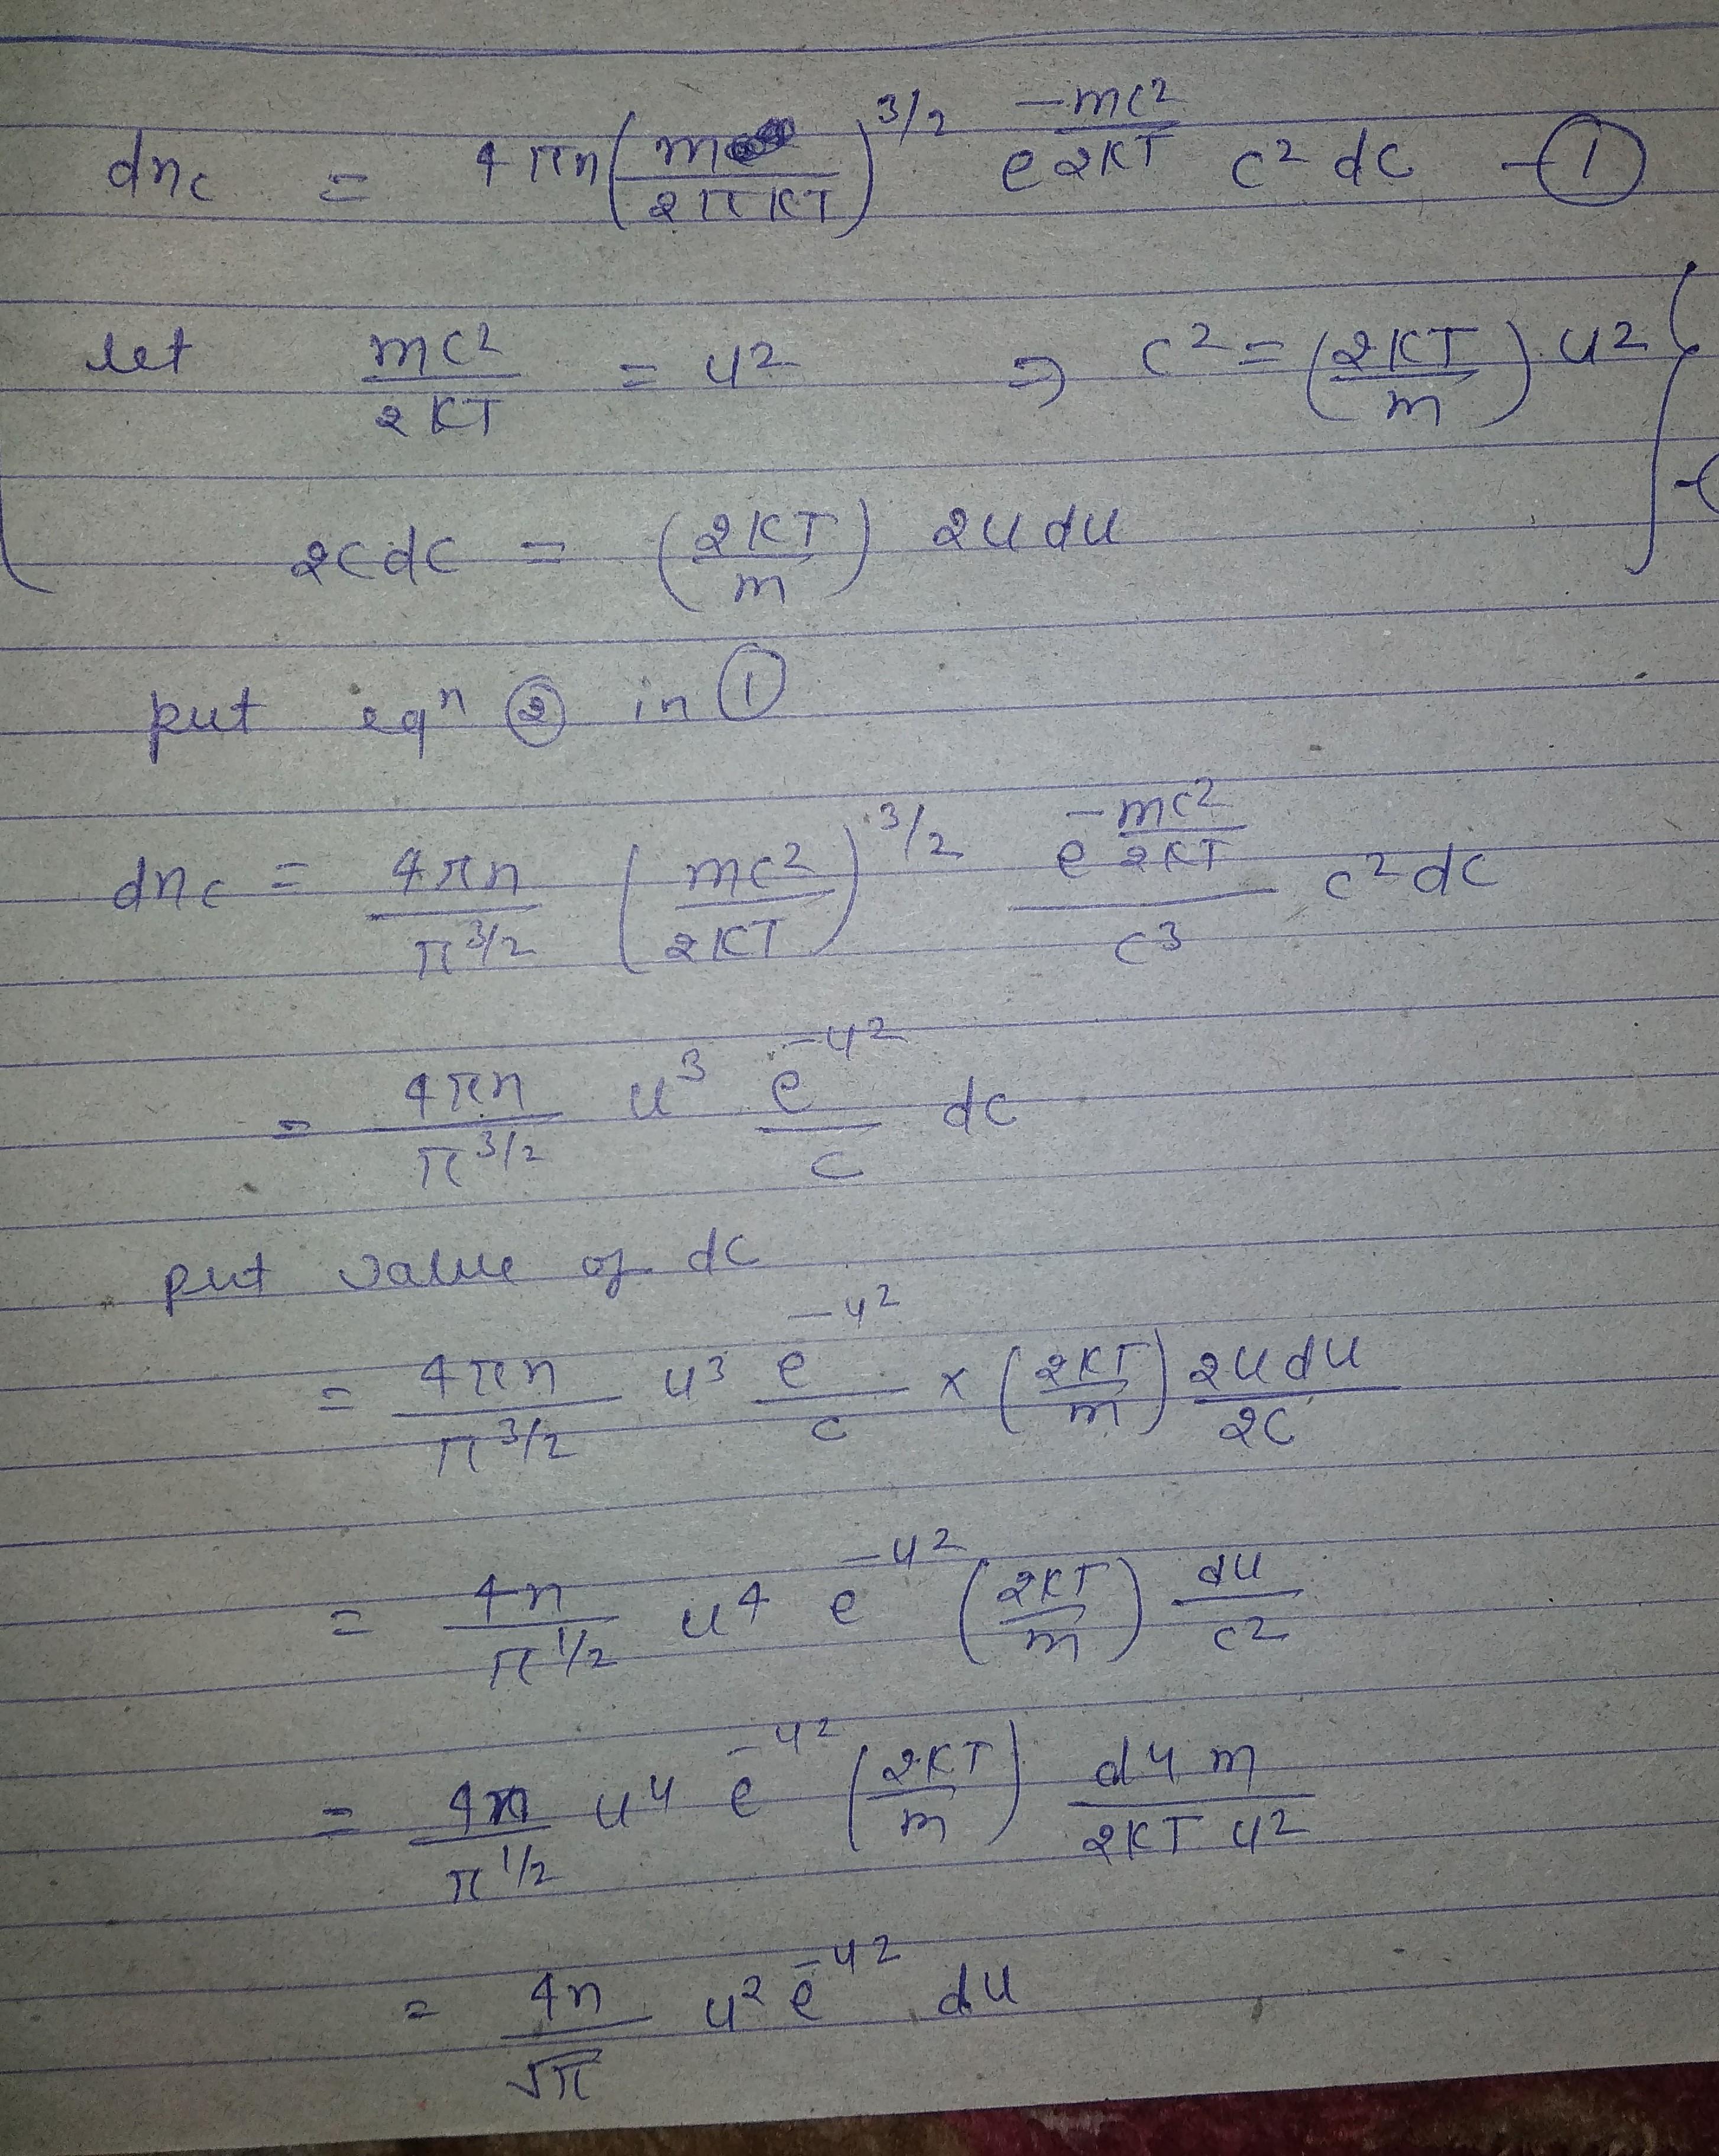 dnc = 4πn(m/2πKT)^3/2 e^-mc²/2KT c² dc —①
let mc²/2KT = u² ⇒ c² = (2KT/m) u²
2cdc = (2KT/m) 2u du
put eqⁿ ② in ①
dnc = 4πn/π^3/2 (mc²/2KT)^3/2 e^-mc²/2KT/c³ c² dc
= 4πn/π^3/2 u³ e^-u²/c dc
put value of dc
= 4πn/π^3/2 u³ e^-u²/c × (2KT/m) 2u du/2c
= 4n/π^1/2 u⁴ e^-u² (2KT/m) du/c²
= 4n/π^1/2 u⁴ e^-u² (2KT/m) du m/2KT u²
= 4n/√π u² e^-u² du